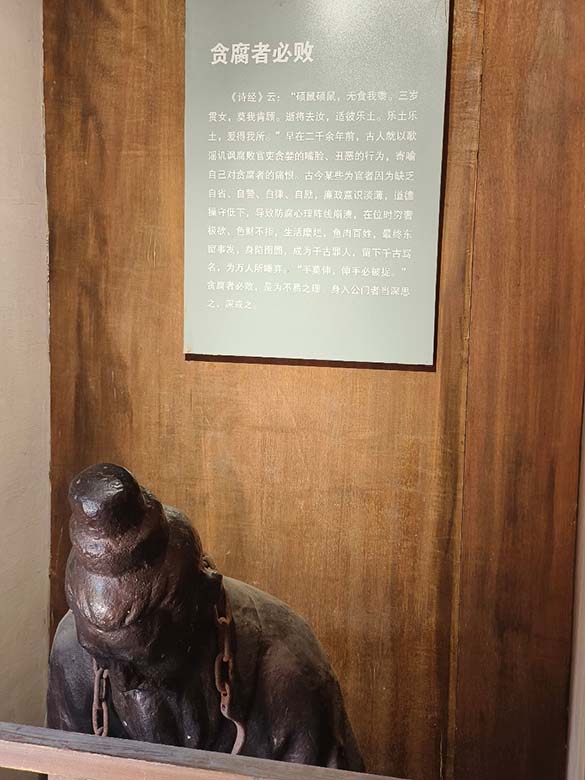 贪腐者必败
《诗经》云：“硕鼠硕鼠，无食我黍。三岁
贯女，莫我肯顾。逝将去汝，适彼乐土。乐土乐
土，爰得我所。”早在二千余年前，古人就以歌
谣讥讽腐败官吏贪婪的嘴脸、丑恶的行为，寄喻
自己对贪腐者的痛恨。古今某些为官者因为缺乏
自省、自警、自律、自励，廉政意识淡薄，道德
操守低下，导致防腐心理阵线崩溃，在位时穷奢
极欲，色财不拒，生活糜烂，鱼肉百姓，最终东
窗事发，身陷囹圄，成为千古罪人，留下千古骂
名，为万人所唾弃。“手莫伸，伸手必被捉。”
贪腐者必败，是为不易之理。身入公门者当深思
之、深戒之。